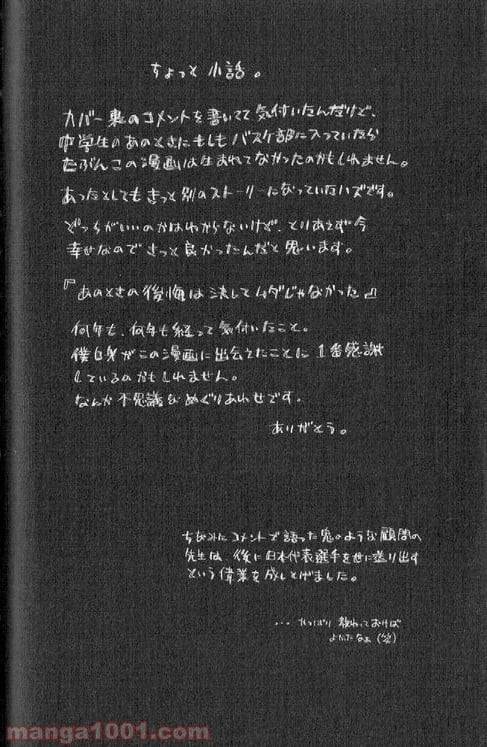 ちょっと小話。
カバー裏のコメントを書いてて気付いたんだけど、
中学生のあのときにもしもバスケ部に入っていたら
たぶんこの漫画は生まれてなかったのかもしれません。
あったとしてもきっと別のストーリーになっていたハズです。
どっちがいいのかはわからないけど、とりあえず今
幸せなのできっと良かったんだと思います。
『あのときの後悔は決してムダじゃなかった』
何年も、何年も経って気付いたこと。
僕自身がこの漫画に出会えたことに1番感謝
しているのかもしれません。
なんか不思議なめぐりあわせです。
ありがとう。
ちなみにコメントで語った鬼のような顧問の
先生は、後に日本代表選手を世に送り出す
という偉業を成しとげました。
... やっぱり教わっておけば
よかったなぁ(笑)
manga1001.com